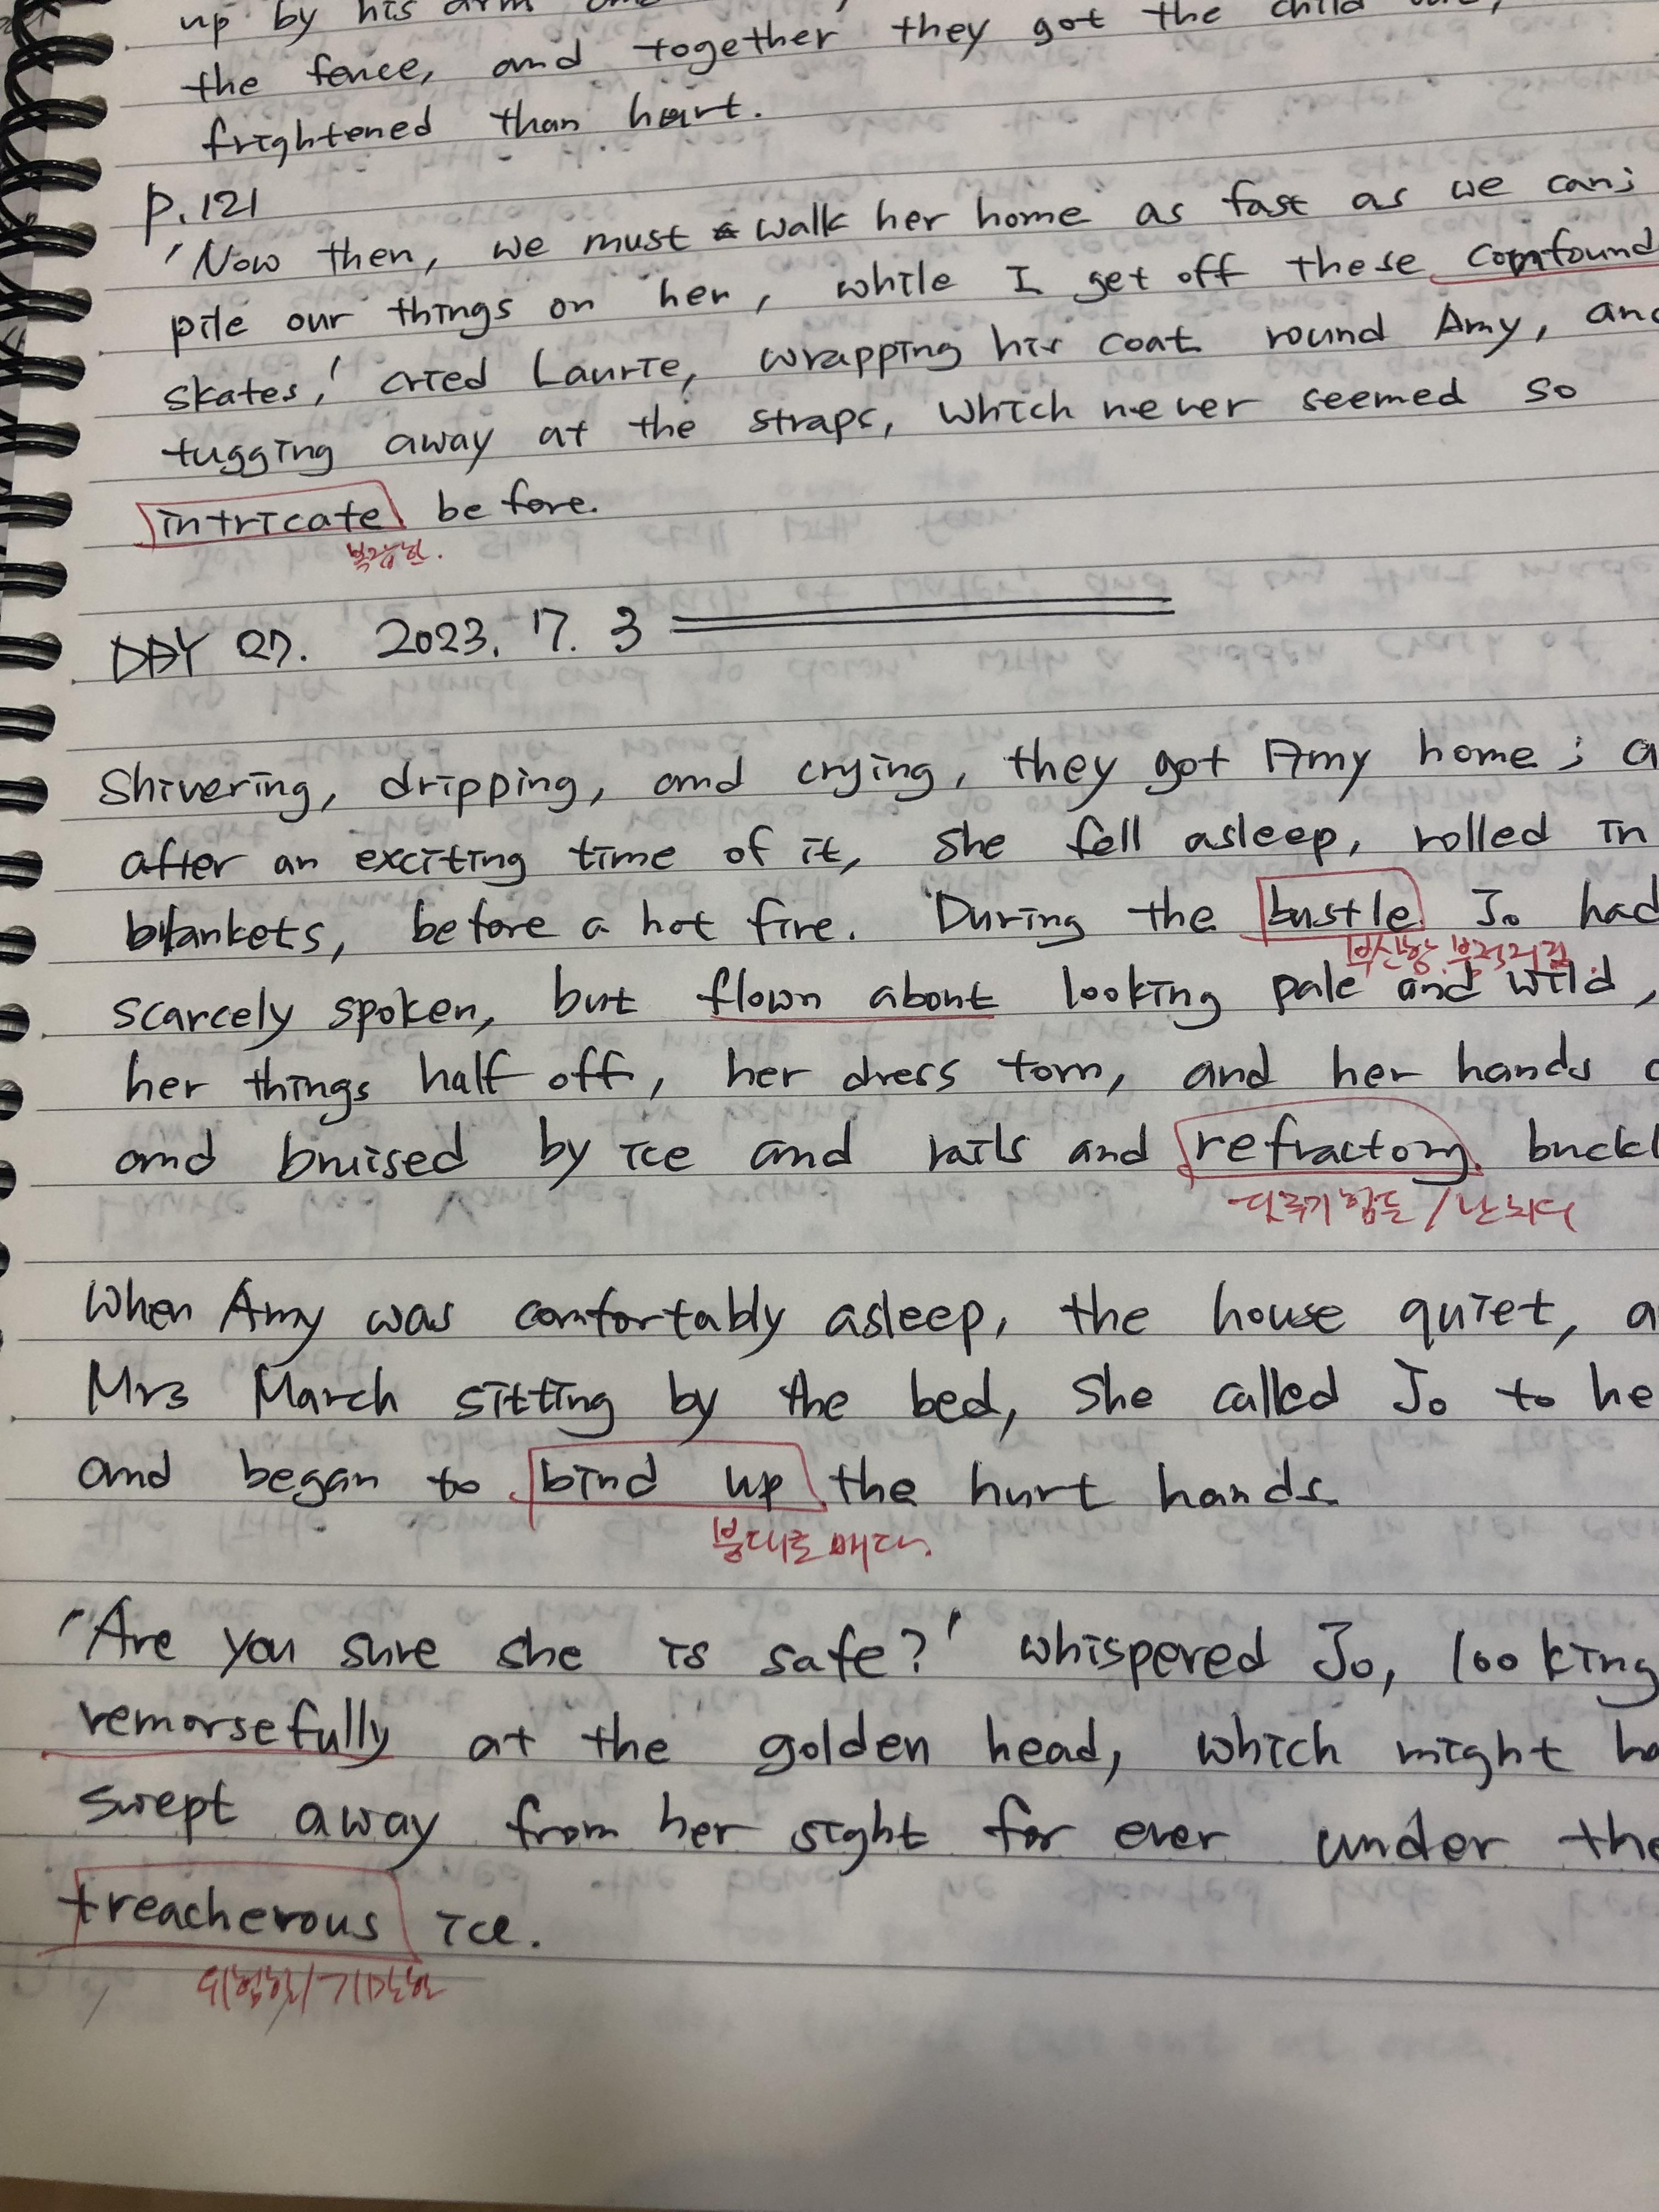 up by his arm
the fence, and together they got the child
frightened than hurt.
p.121
'Now then, we must walk her home as fast as we can;
pile our things on her, while I get off these confound
skates,' cried Laurie, wrapping his coat round Amy, and
tugging away at the straps, which never seemed so
intricate before.
복잡한.
DAY 27. 2023. 7. 3
Shivering, dripping, and crying, they got Amy home; a
after an exciting time of it, she fell asleep, rolled in
blankets, before a hot fire. During the bustle Jo had
부산함. 북적거림.
scarcely spoken, but flown about looking pale and wild,
her things half off, her dress torn, and her hands c
and bruised by ice and rails and refractory buckl
다루기 힘든 /
When Amy was comfortably asleep, the house quiet, a
Mrs March sitting by the bed, she called Jo to he
and began to bind up the hurt hands.
붕대로 매다.
'Are you sure she is safe?' whispered Jo, looking
remorsefully at the golden head, which might ha
swept away from her sight for ever under the
treacherous ice.
위험한/기만한